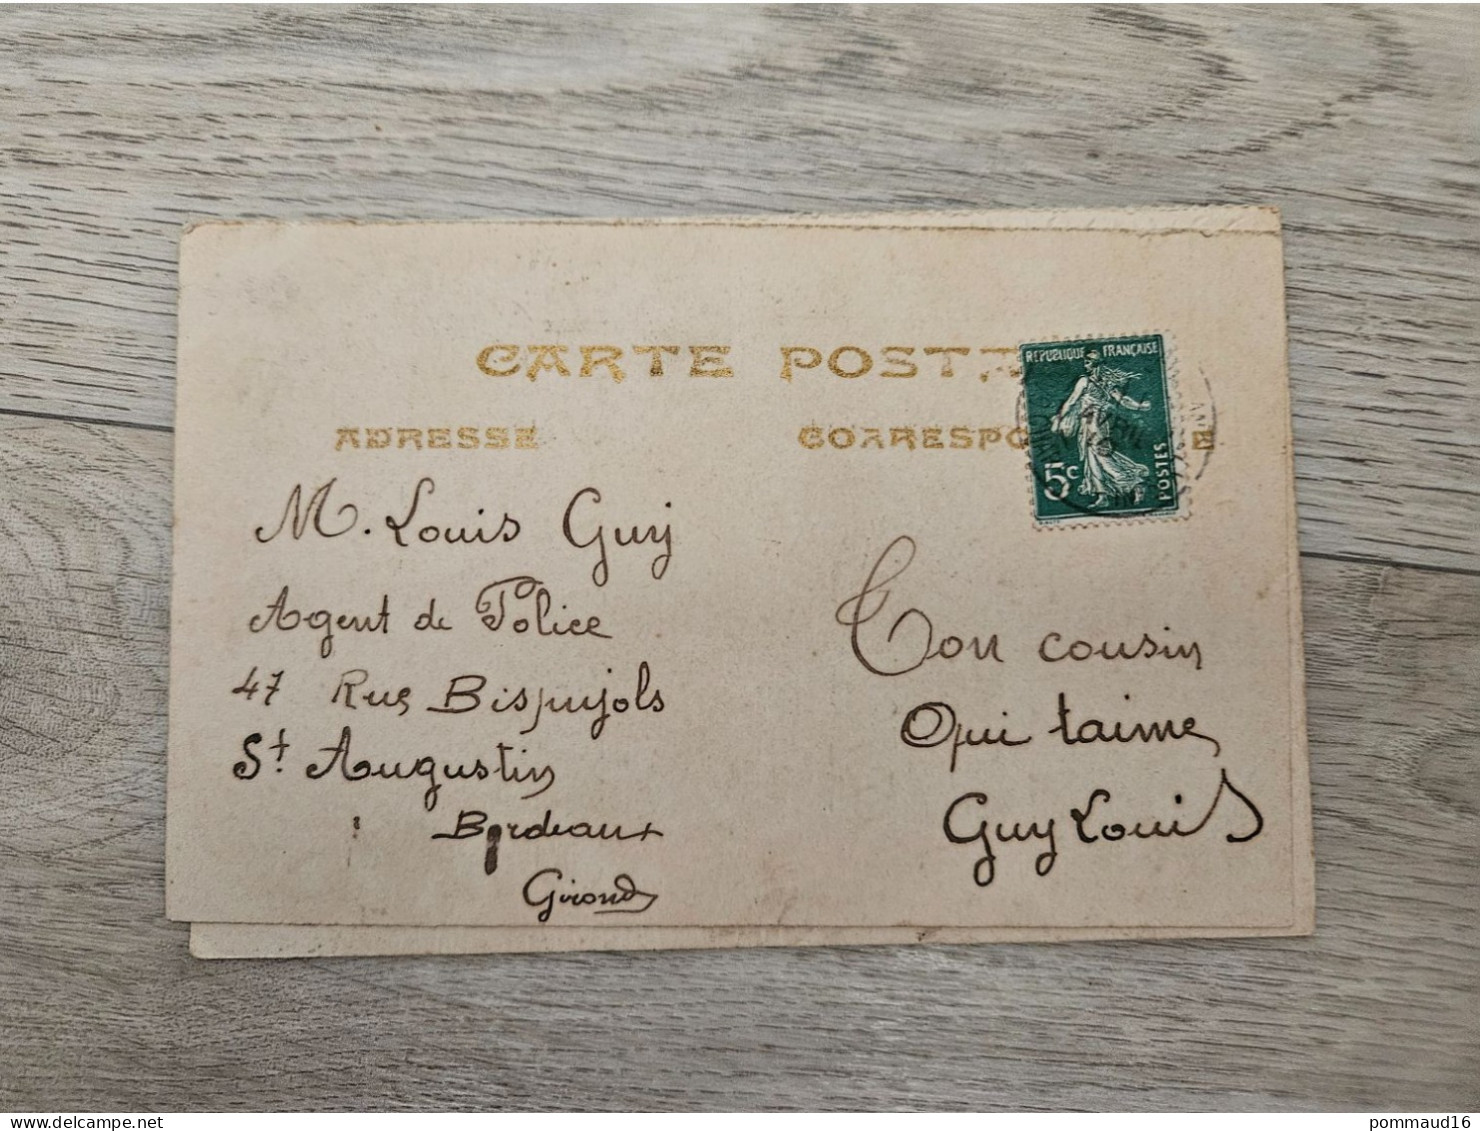 CARTE POSTA
ADRESSE
M. Louis Guy
Agent de Police
47 Rue Bispujols
St Augustin
Bordeaux
Gironde
RÉPUBLIQUE FRANÇAISE
5c
POSTES
AVRIL
Ton cousin
Qui taime
Guy Louis
delcampe.net
pommaud16